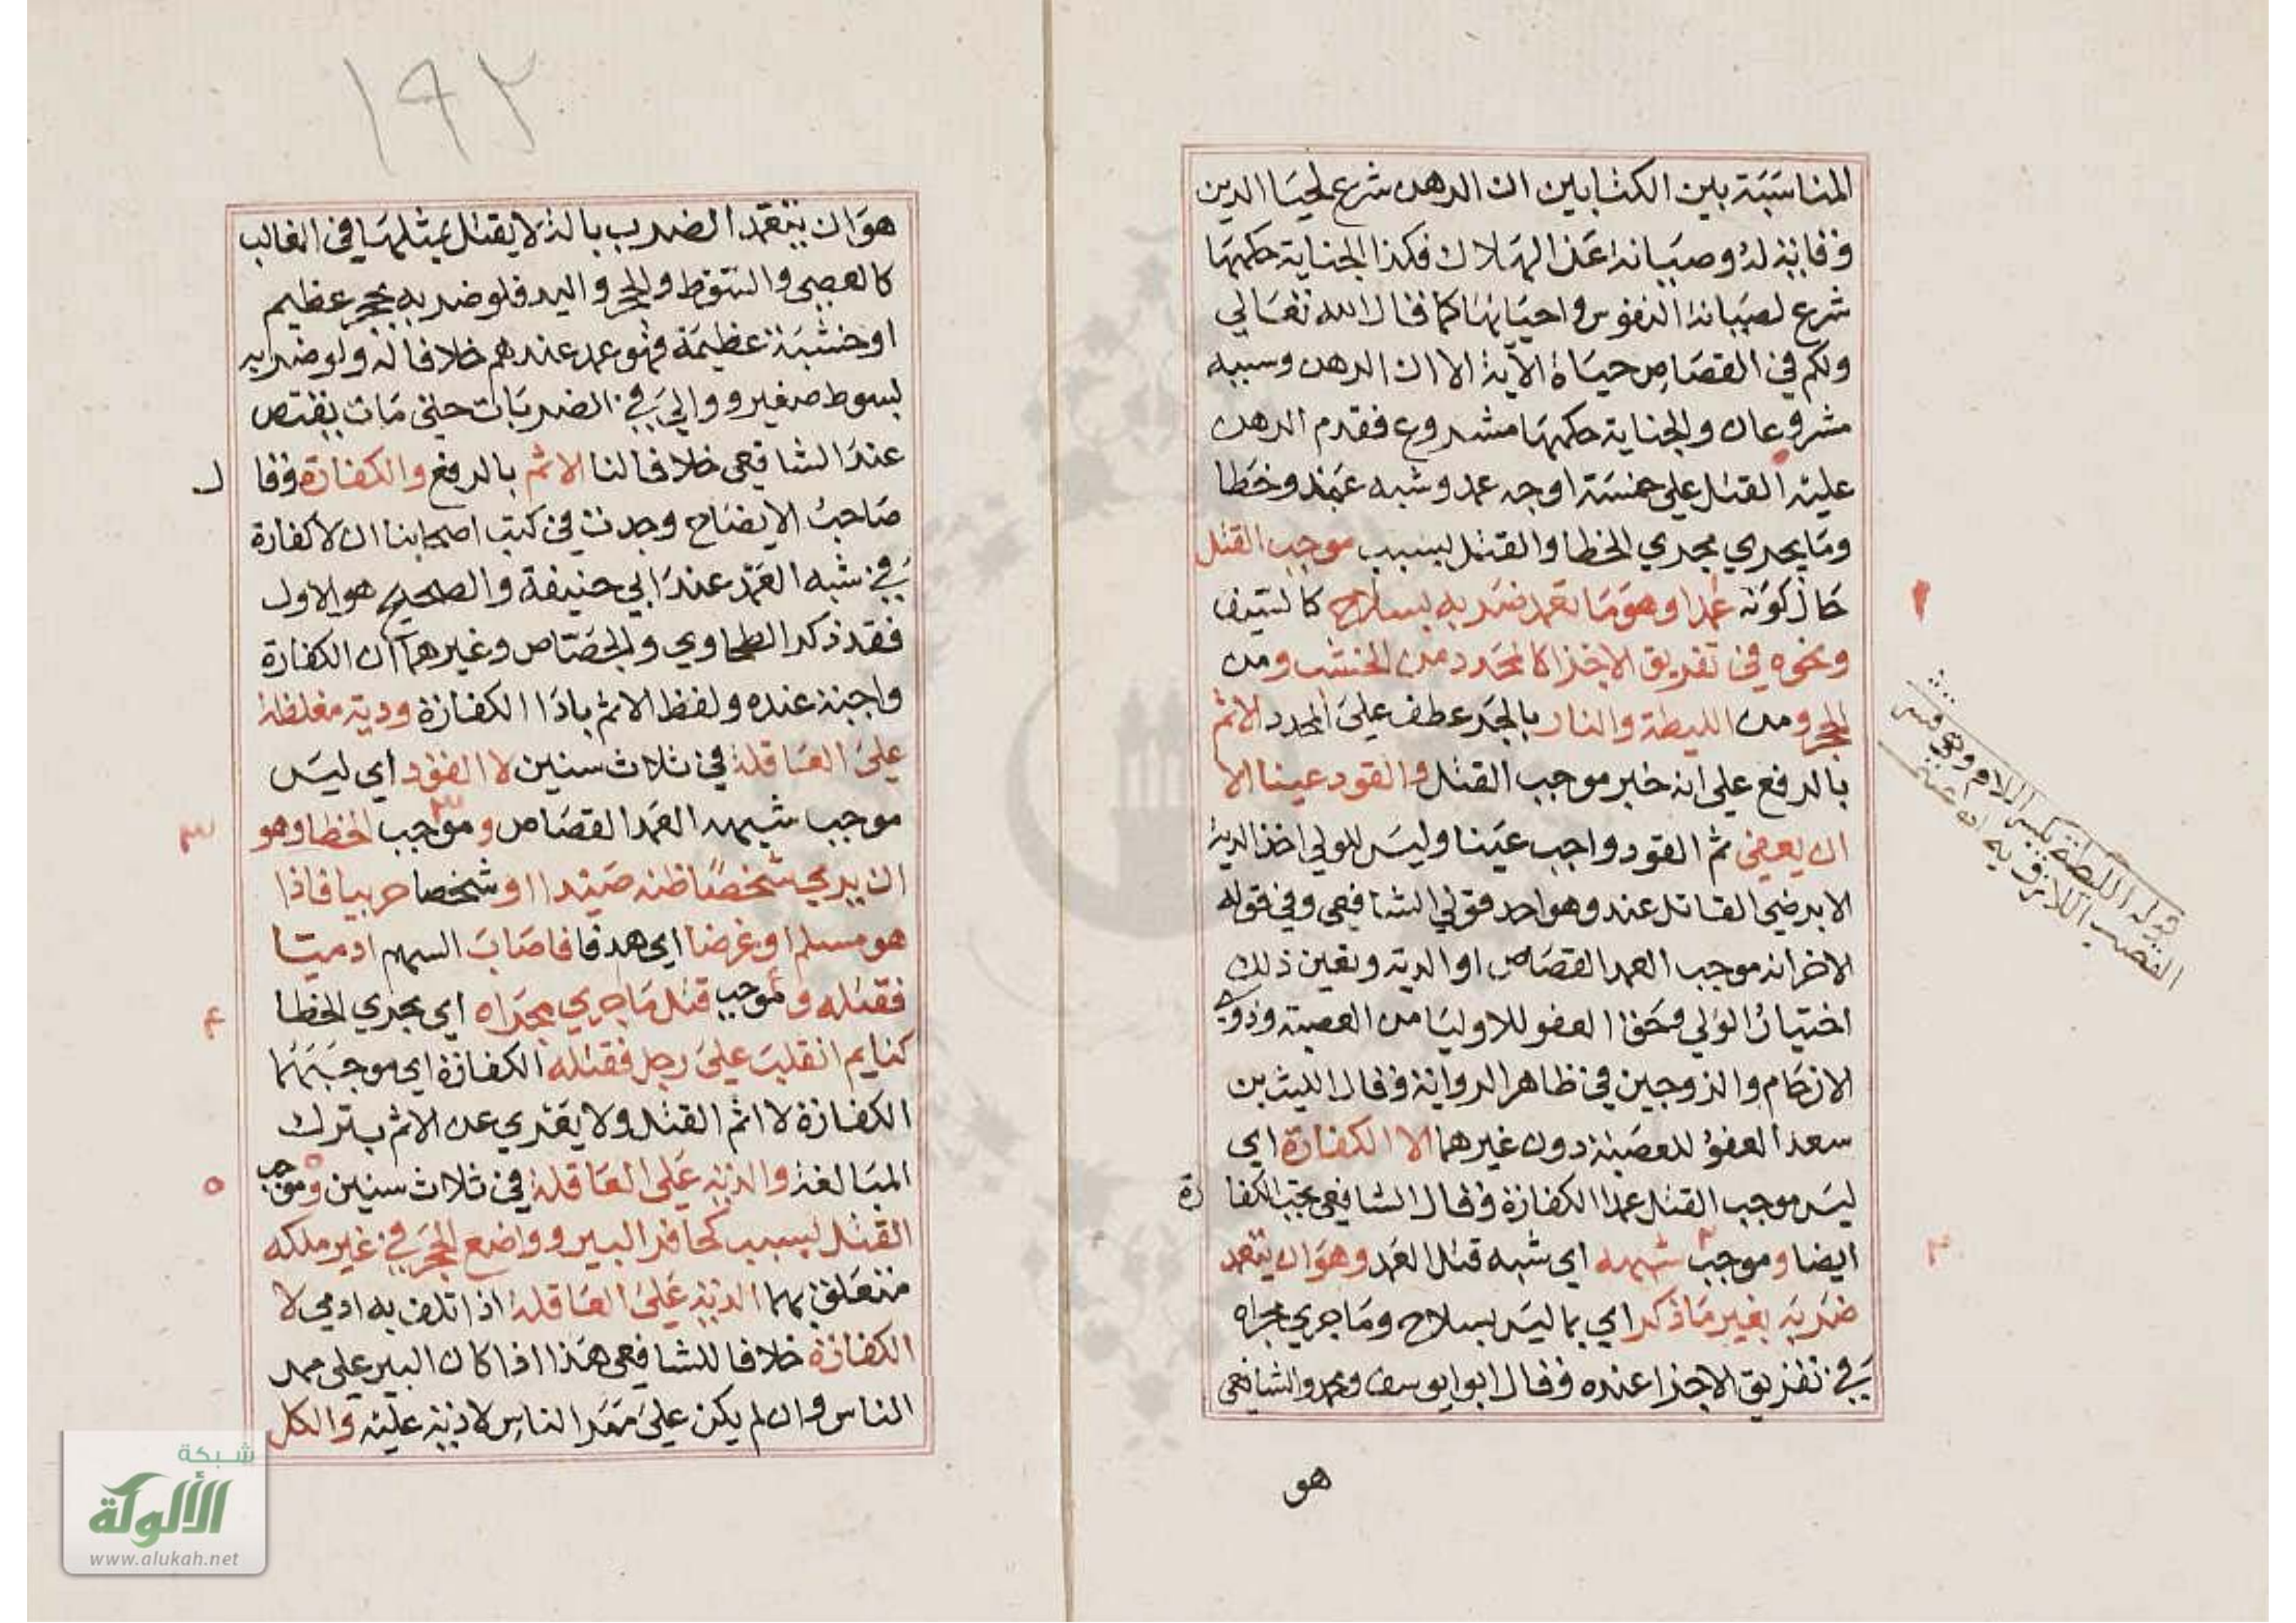 المناسبة بين الكتابين ان الرهن شرع لحيا الدين
وقاية له وصيانة عن الهلاك فكذا الجناية حكمها
شرع لصيانة النفوس واحيائها كما قال الله تعالي
ولكم في القصاص حياة الآية الا ان الرهن وسببه
مشروعان والجناية حكمها مشروع فقدم الرهن
عليه القتل علي خمسة اوجه عمد وشبه عمد وخطا
وما يجري مجري الخطا والقتل بسبب موجب القتل
حال كونه عمدا وهو ما تعمد ضربه بسلاح كالسيف
ونحوه في تفريق الاجزا كالمحدد من الخشب ومن
الحجر ومن الليطة والنار بالجر عطف علي المحدد الاثم
بالرفع علي انه خبر موجب القتل والقود عينا الا
ان يعفي ثم القود واجب عينا وليس للولي اخذ الدية
الا برضي القاتل عند وهو احد قولي الشافعي وفي قوله
الاخر انه موجب العمد القصاص او الدية وتعين ذلك
اختيار الولي وحق العفو للاوليا من العصبة وذوي
الارحام والزوجين في ظاهر الرواية وقال الليث بن
سعد العفو للعصبة دون غيرهما لا الكفارة اي
ليس موجب القتل عمدا الكفارة وقال الشافعي تجب الكفا رة
ايضا وموجب شبهه اي شبه قتل العمد وهو ان يتعمد
ضربه بغير ما ذكر اي بما ليس بسلاح وما جري مجراه
في تفريق الاجزا عنده وقال ابو ايوسف ومحمد والشافعي
هو
قوله الليطة بكسر اللام وهو قشر
القصب اللازق به
١
٢
١٩٢
هو ان يتعمد الضرب بالة لا يقتل بمثلها في الغالب
كالعصي والسوط والحجر واليد فلو ضربه بحجر عظيم
او خشبة عظيمة فهو عمد عندهم خلافا له ولو ضربه
بسوط صغير ووالي في الضربات حتي مات يقتص
عند الشافعي خلافا لنا الاثم بالرفع والكفارة وقا ل
صاحب الايضاح وجدت في كتب اصحابنا ان لا كفارة
في شبه العمد عند ابي حنيفة والصحيح هو الاول
فقد ذكر الطحاوي والجصاص وغيرهما ان الكفارة
واجبة عنده ولفظ الاثم باذا الكفارة ودية مغلظة
علي العاقلة في ثلاث سنين لا القود اي ليس
موجب شبهه العمد القصاص وموجب الخطا وهو
ان يرمي شخصا ظنه صيدا او شخصا حربيا فاذا
هو مسلم او غرضا اي هدفا فاصاب السهم ادميا
فقتله وموجب قتل ما جري مجراه اي مجري الخطا
كنايم انقلب علي رجل فقتله الكفارة اي موجبهما
الكفارة لا اثم القتل ولا يعري عن الاثم بترك
المبالغة والدية علي العاقلة في ثلاث سنين وموجب
القتل بسبب كحافر البير وواضع الحجر في غير ملكه
متعلق بهما الدية علي العاقلة اذا تلف به ادمي لا
الكفارة خلافا للشافعي هذا اذا كان البير علي ممر
الناس وان لم يكن علي ممر الناس لا دية عليه والكل
٣
٤
٥
شبكة
الألوكة
www.alukah.net